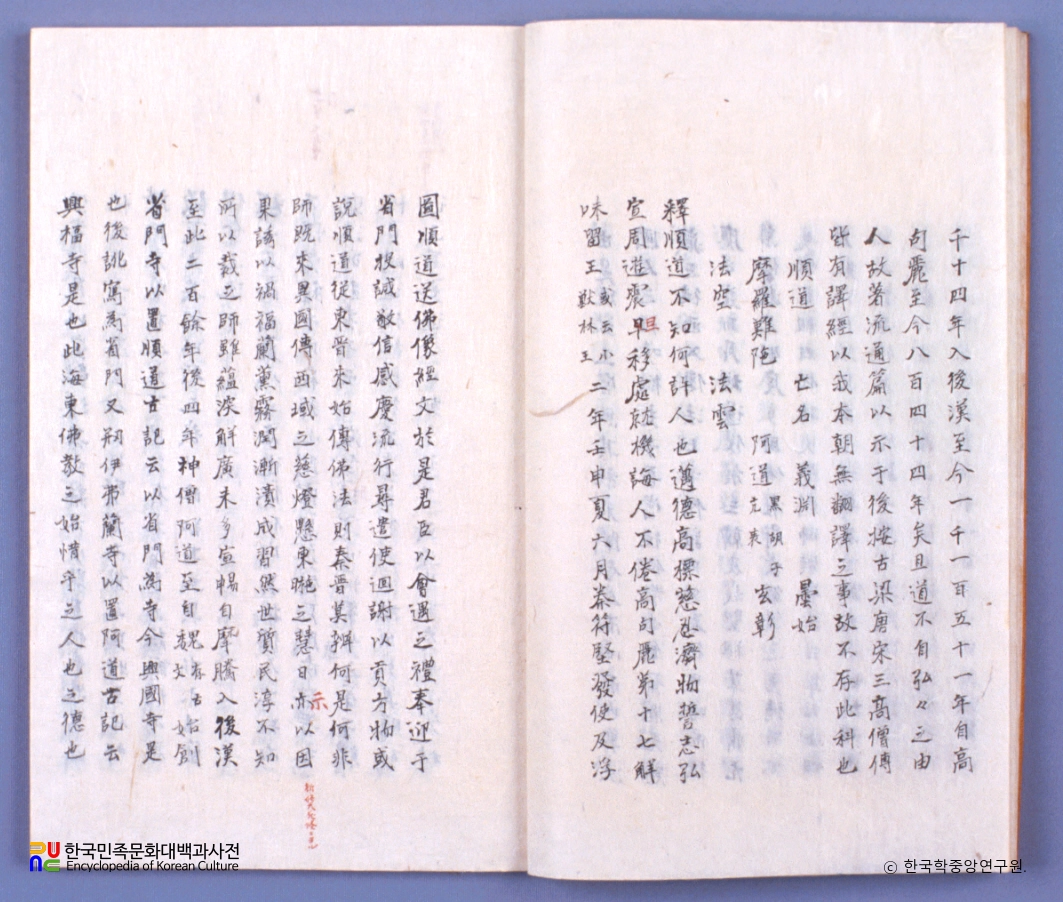 千十四年入後漢至今一千一百五十一年自高
句麗至今八百四十四年矣且道不自弘々之由
人故著流通篇以示于後按古梁唐宋三高僧傳
皆有譯經以我本朝無翻譯之事故不存此科也
順道 亡名 義淵 曇始
摩羅難陁 阿道 黑胡子 元表 玄彰
法空 法雲
釋順道不知何許人也邁德高標慈忍濟物誓志弘
宣周遊震早旦移處就機誨人不倦高句麗第十七解
味留王或云小獸林王二年壬申夏六月秦苻堅發使及浮
圖順道送佛像經文於是君臣以會遇之禮奉迎于
省門投誠敬信感慶流行尋遣使迴謝以貢方物或
說順道從東晉來始傳佛法則秦晉莫辨何是何非
師旣來異國傳西域之慈燈懸東暆之慧日亦示以因
果誘以禍福蘭薰霧潤漸漬成習然世質民淳不知
所以裁之師雖蘊深解廣未多宣暢自摩騰入後漢
至此二百餘年後四年神僧阿道至自魏存古文始創
省門寺以置順道古記云以省門爲寺今興國寺是
也後訛寫爲肖門又刱伊弗蘭寺以置阿道古記云
興福寺是也此海東佛敎之始惜乎之人也之德也
한국민족문화대백과사전
Encyclopedia of Korean Culture
© 한국학중앙연구원.